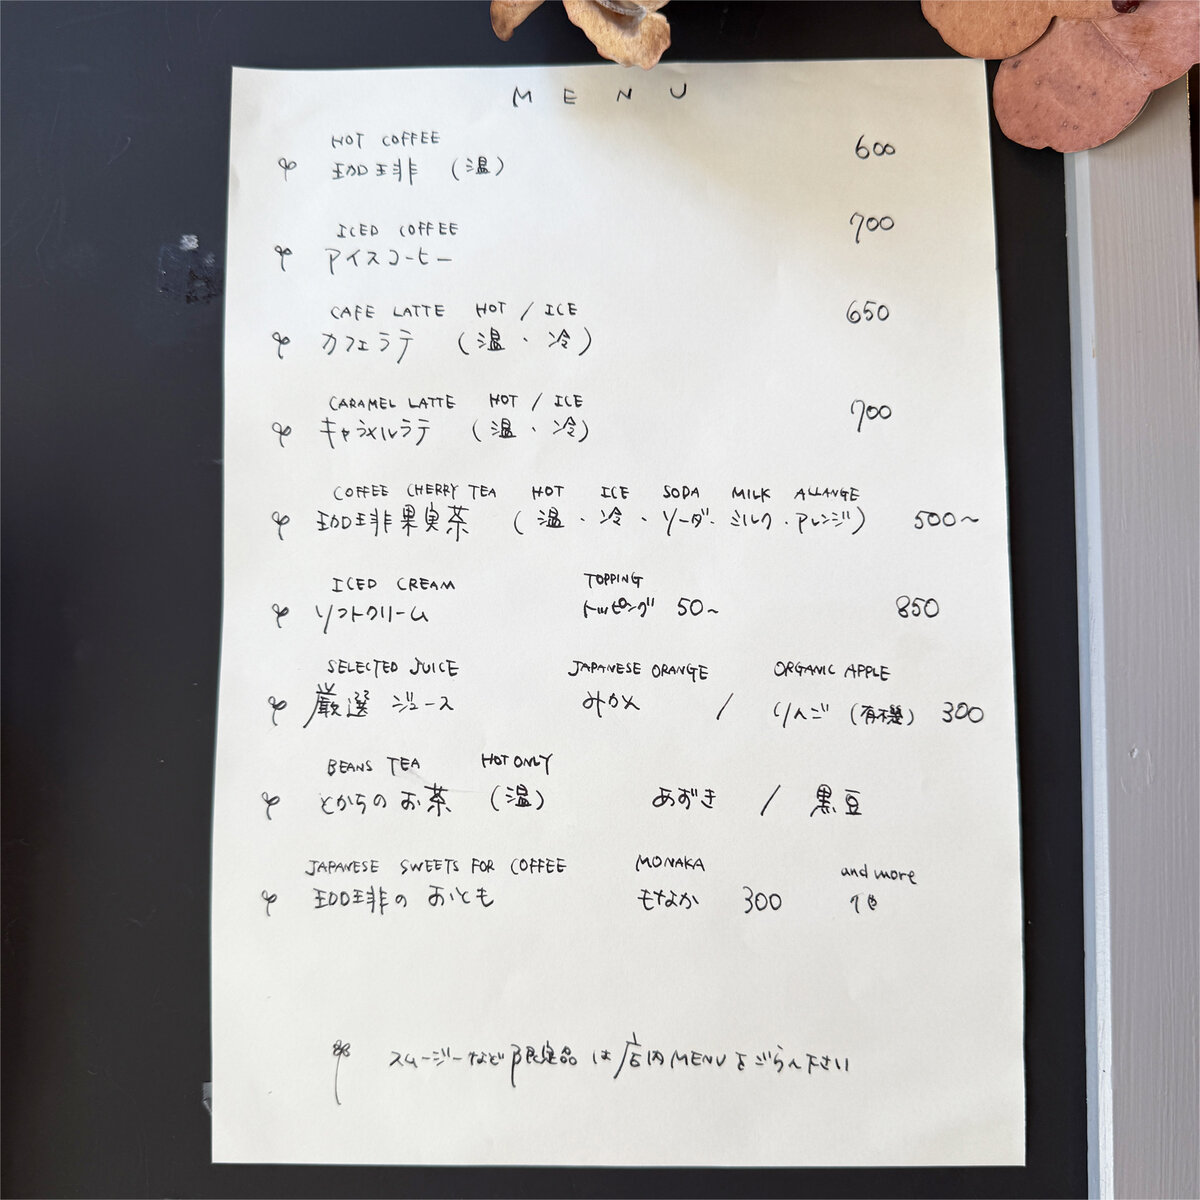 MENU
HOT COFFEE
珈琲 (温) 600
ICED COFFEE
アイスコーヒー 700
CAFE LATTE HOT / ICE
カフェラテ (温・冷) 650
CARAMEL LATTE HOT / ICE
キャラメルラテ (温・冷) 700
COFFEE CHERRY TEA HOT ICE SODA MILK ALLANGE
珈琲果実茶 (温・冷・ソーダ・ミルク・アレンジ) 500~
ICED CREAM TOPPING
ソフトクリーム トッピング 50~ 850
SELECTED JUICE JAPANESE ORANGE ORGANIC APPLE
厳選 ジュース みかん / りんご (有機) 300
BEANS TEA HOT ONLY
とかちのお茶 (温) あずき / 黒豆
JAPANESE SWEETS FOR COFFEE MONAKA and more
珈琲のおとも もなか 300 他
スムージーなど限定品は店内MENUをごらん下さい